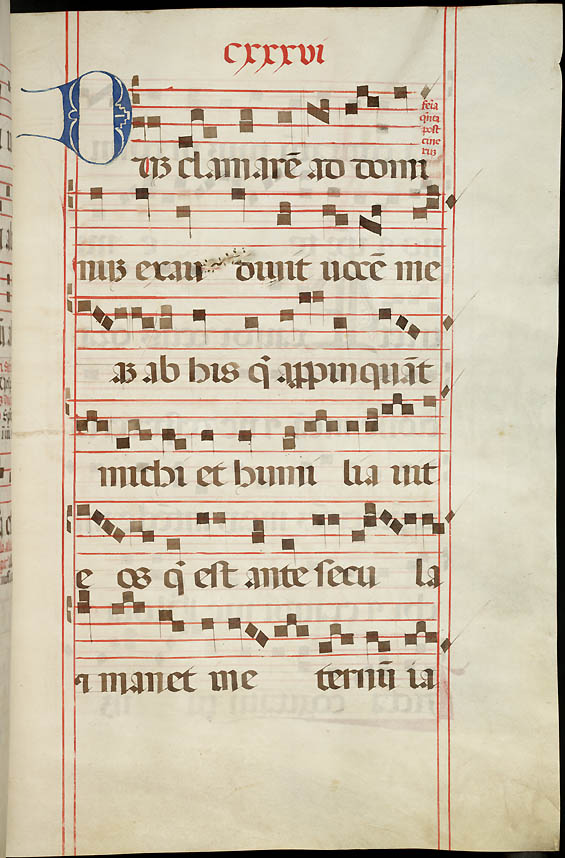 cxxxvi
feria
qinta
post
cine
rus
Dum clamarē ad domi
num exau diuit uocē me
am ab his q̄ appinquāt
michi et humi lia uit
e os q̄ est ante secu la
⁊ manet ine ternū ia